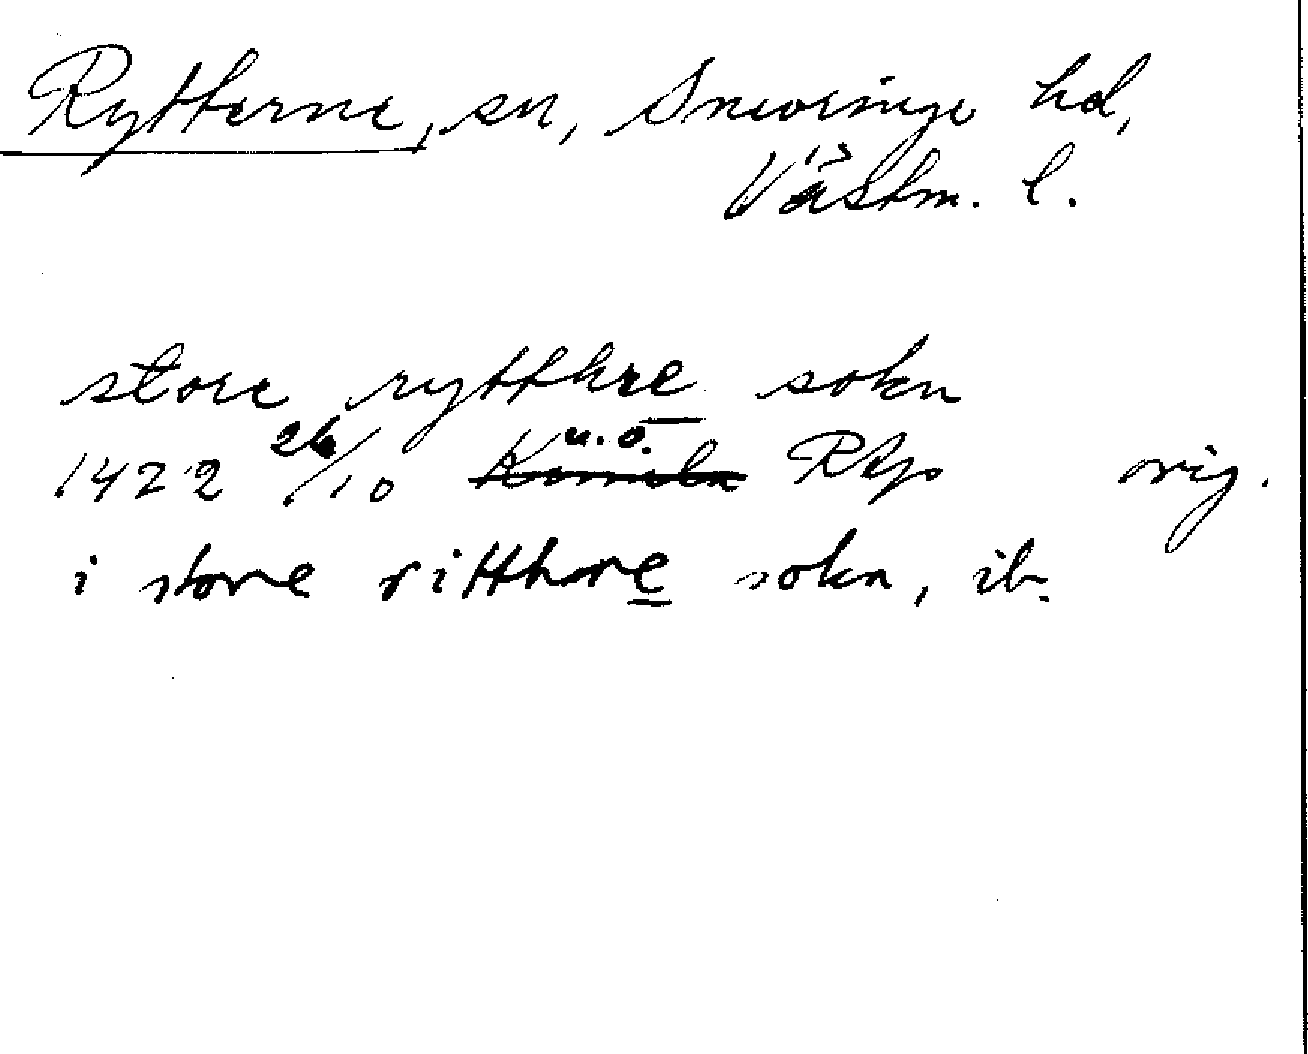 Rytterne, sn, Snevringe hd,
Västm. l.
store rytthre sokn
1422 26/10 u. o. RAp orig.
i store ritthre sokn, ib.